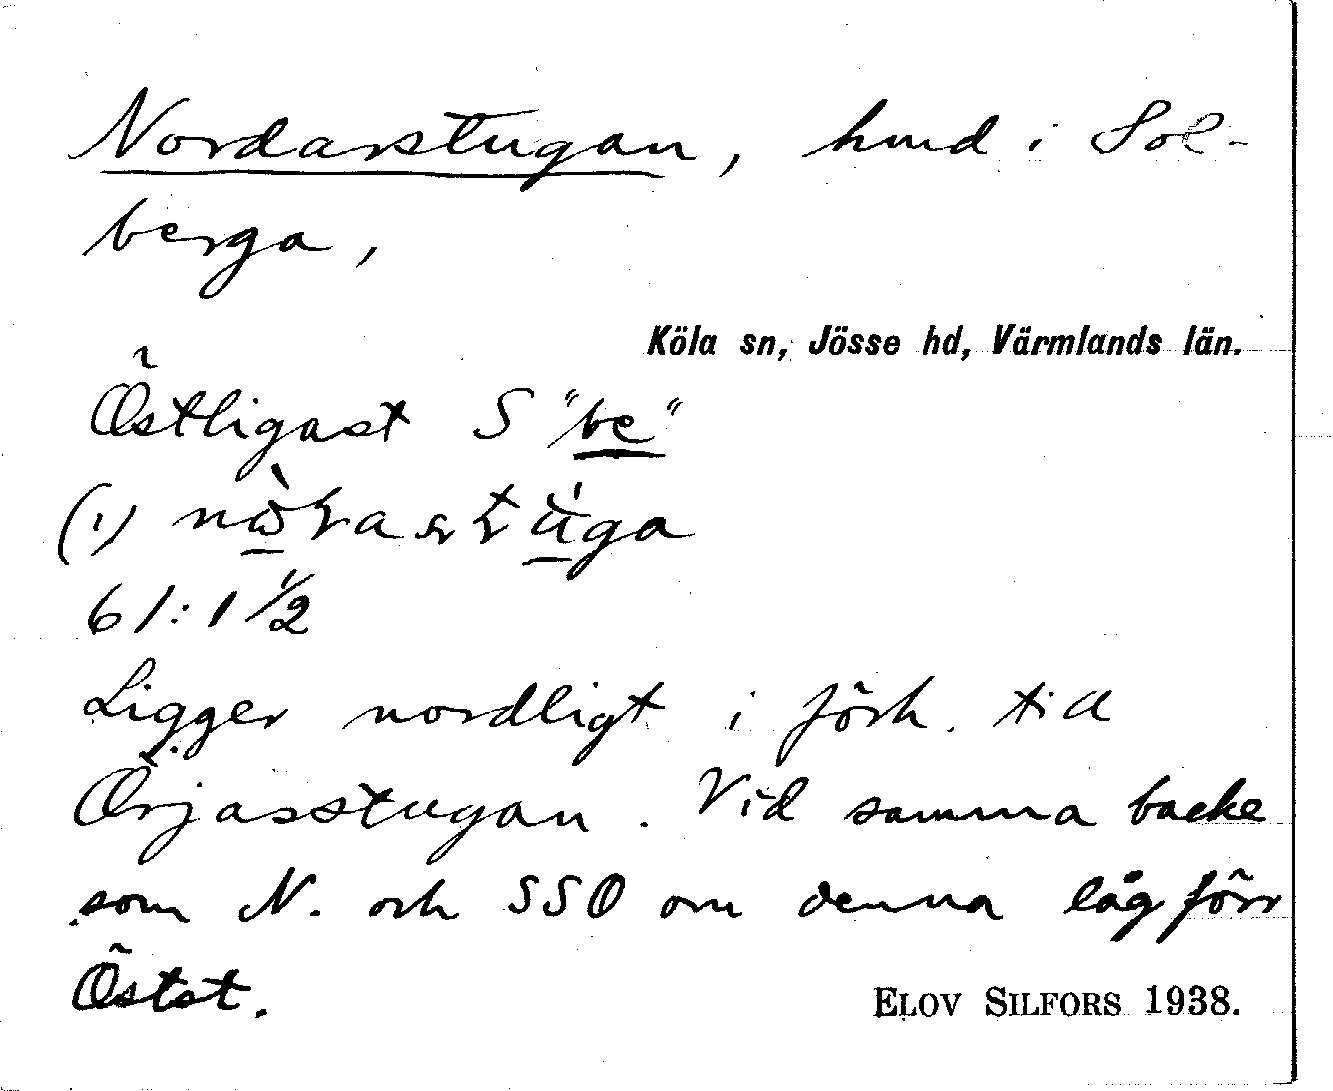 Nordarstugan, hmd i Sol-
berga,
Köla sn, Jösse hd, Värmlands län.
Östligast S "be"
(1)
61:1½
Ligger nordligt i förh. till
Örjasstugan. Vid samma backe
som N. och SSO om denna låg förr
Östst.
ELOV SILFORS 1938.